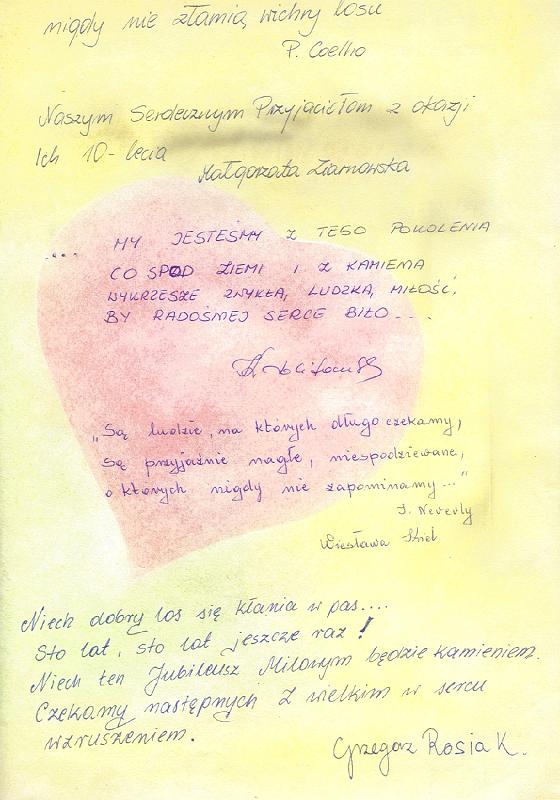 nigdy nie złamią wichry losu
P. Coelho
Naszym Serdecznym Przyjaciołom z okazji
Ich 10-lecia
Małgorzata Ziarnowska
.... MY JESTEŚMY Z TEGO POKOLENIA
CO SPOD ZIEMI I Z KAMIENIA
WYKRZESZE ZWYKŁĄ, LUDZKĄ, MIŁOŚĆ,
BY RADOŚNIEJ SERCE BIŁO ....
„Są ludzie, na których długo czekamy,
Są przyjaźnie nagłe, niespodziewane,
o których nigdy nie zapominamy..."
J. Neverly
Wiesława
Niech dobry los się kłania w pas....
Sto lat, sto lat jeszcze raz!
Niech ten Jubileusz Milowym będzie kamieniem.
Czekamy następnych z wielkim w sercu
wzruszeniem.
Grzegorz Rosiak.